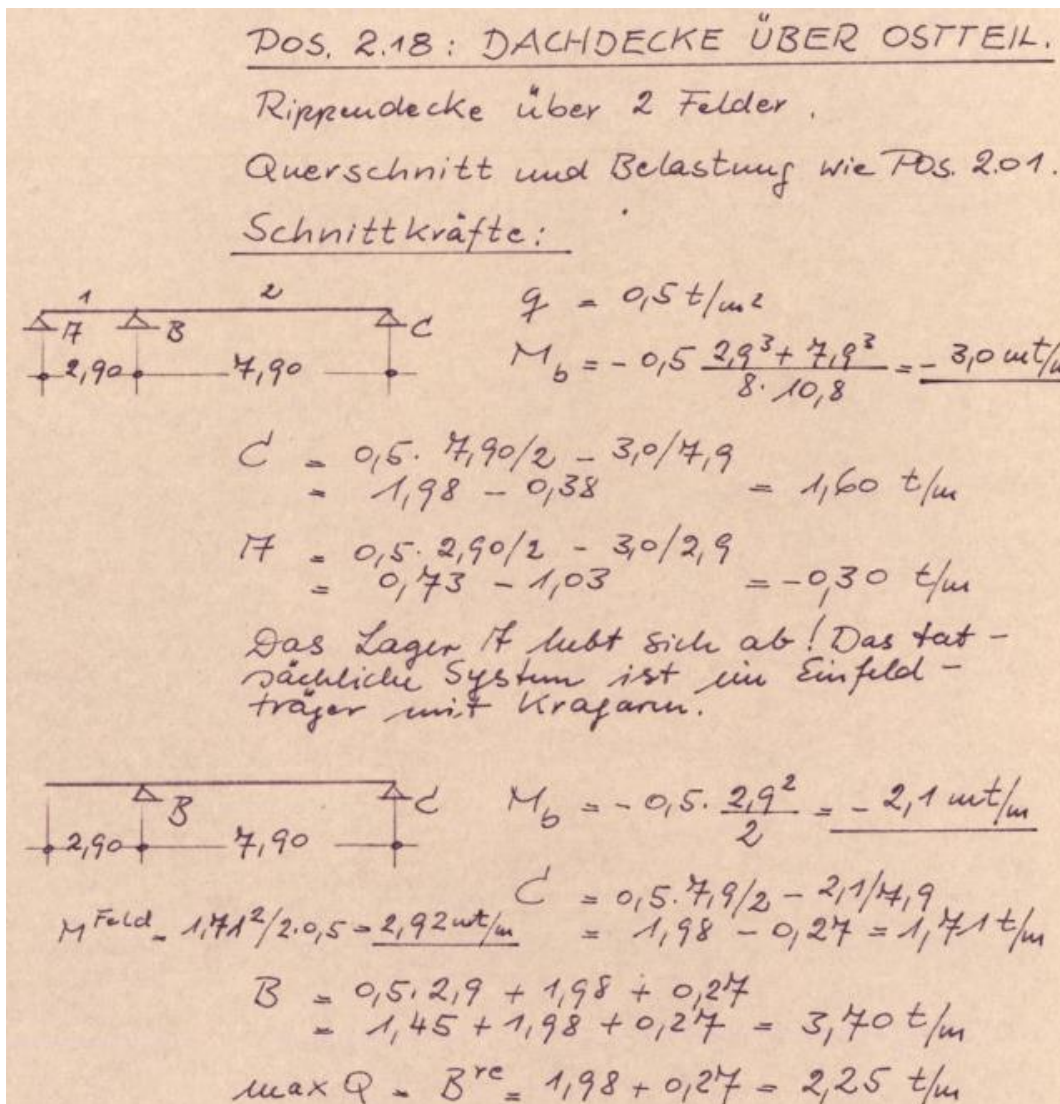 POS. 2.18: DACHDECKE ÜBER OSTTEIL.
Rippendecke über 2 Felder.
Querschnitt und Belastung wie POS. 2.01.
Schnittkräfte:
1 2
A B C
2,90 7,90
q = 0,5 t/m²
M_b = - 0,5 (2,9³ + 7,9³)/(8 · 10,8) = - 3,0 mt/m
C = 0,5 · 7,90/2 - 3,0/7,9
= 1,98 - 0,38 = 1,60 t/m
A = 0,5 · 2,90/2 - 3,0/2,9
= 0,73 - 1,03 = -0,30 t/m
Das Lager A hebt sich ab! Das tat-
sächliche System ist ein Einfeld-
träger mit Kragarm.
B C
2,90 7,90
M_b = - 0,5 · 2,9²/2 = - 2,1 mt/m
C = 0,5 · 7,9/2 - 2,1/7,9
= 1,98 - 0,27 = 1,71 t/m
M^Feld = 1,71²/2·0,5 = 2,92 mt/m
B = 0,5 · 2,9 + 1,98 + 0,27
= 1,45 + 1,98 + 0,27 = 3,70 t/m
max Q = B^re = 1,98 + 0,27 = 2,25 t/m